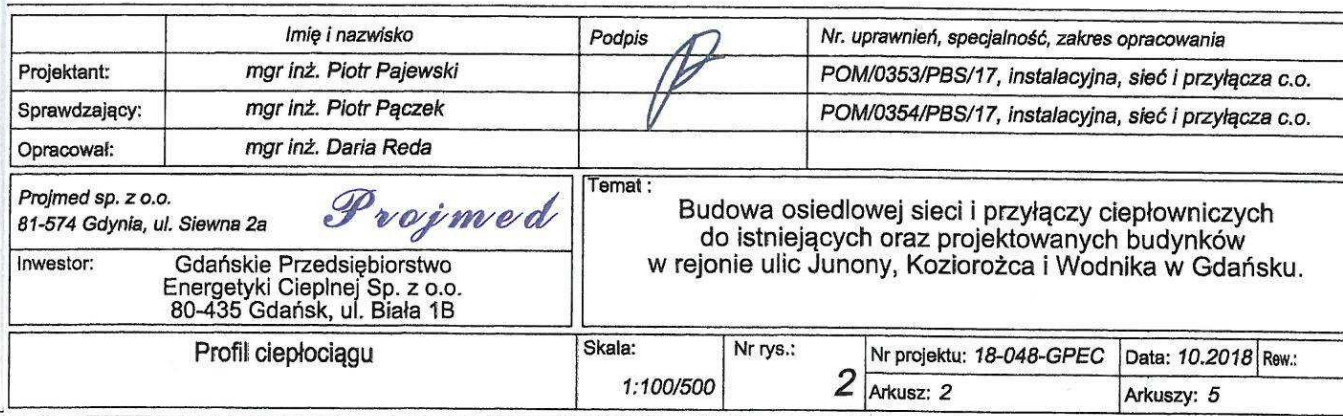 Imię i nazwisko Podpis Nr. uprawnień, specjalność, zakres opracowania
Projektant: mgr inż. Piotr Pajewski POM/0353/PBS/17, instalacyjna, sieć i przyłącza c.o.
Sprawdzający: mgr inż. Piotr Pączek POM/0354/PBS/17, instalacyjna, sieć i przyłącza c.o.
Opracował: mgr inż. Daria Reda
Projmed sp. z o.o.
81-574 Gdynia, ul. Siewna 2a
Projmed
Inwestor: Gdańskie Przedsiębiorstwo
Energetyki Cieplnej Sp. z o.o.
80-435 Gdańsk, ul. Biała 1B
Temat :
Budowa osiedlowej sieci i przyłączy ciepłowniczych
do istniejących oraz projektowanych budynków
w rejonie ulic Junony, Koziorożca i Wodnika w Gdańsku.
Profil ciepłociągu
Skala:
1:100/500
Nr rys.:
2
Nr projektu: 18-048-GPEC Data: 10.2018 Rew.:
Arkusz: 2 Arkuszy: 5